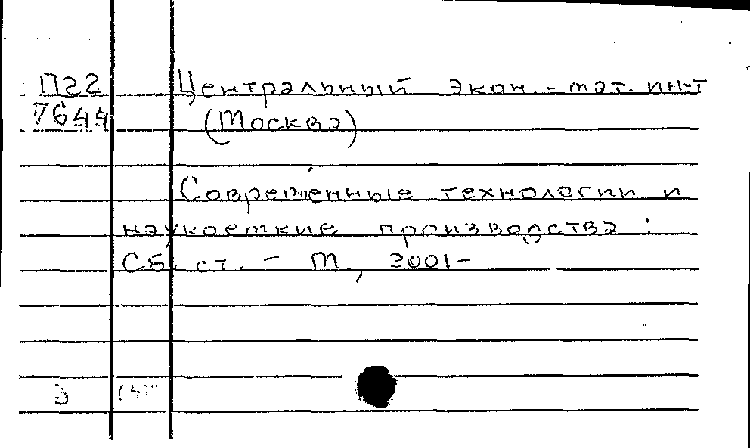 П22 Центральный экон.-мат. ин-т
7644 (Москва)
Современные технологии и
наукоемкие производства :
Сб. ст. - М., 2001-
Э